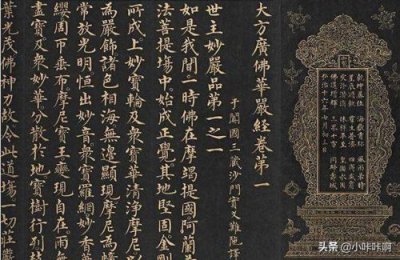 大方廣佛華嚴經卷第一
于闐國三藏沙門實叉難陁譯
世主妙嚴品第一之一
如是我聞一時佛在摩竭提國阿蘭若
法菩提塲中始成正覺其地堅固金剛
所成上妙寶輪及衆寶華清淨摩尼以
為嚴飾諸色相海無邊顯現摩尼為幢
常放光明恒出妙音衆寶羅網妙香華
纓周帀垂布摩尼寶王變現自在雨無
盡寶及衆妙華分散於地寶樹行列枝
葉光茂佛神力故令此道塲一切莊嚴
头条 @小咔咔啊